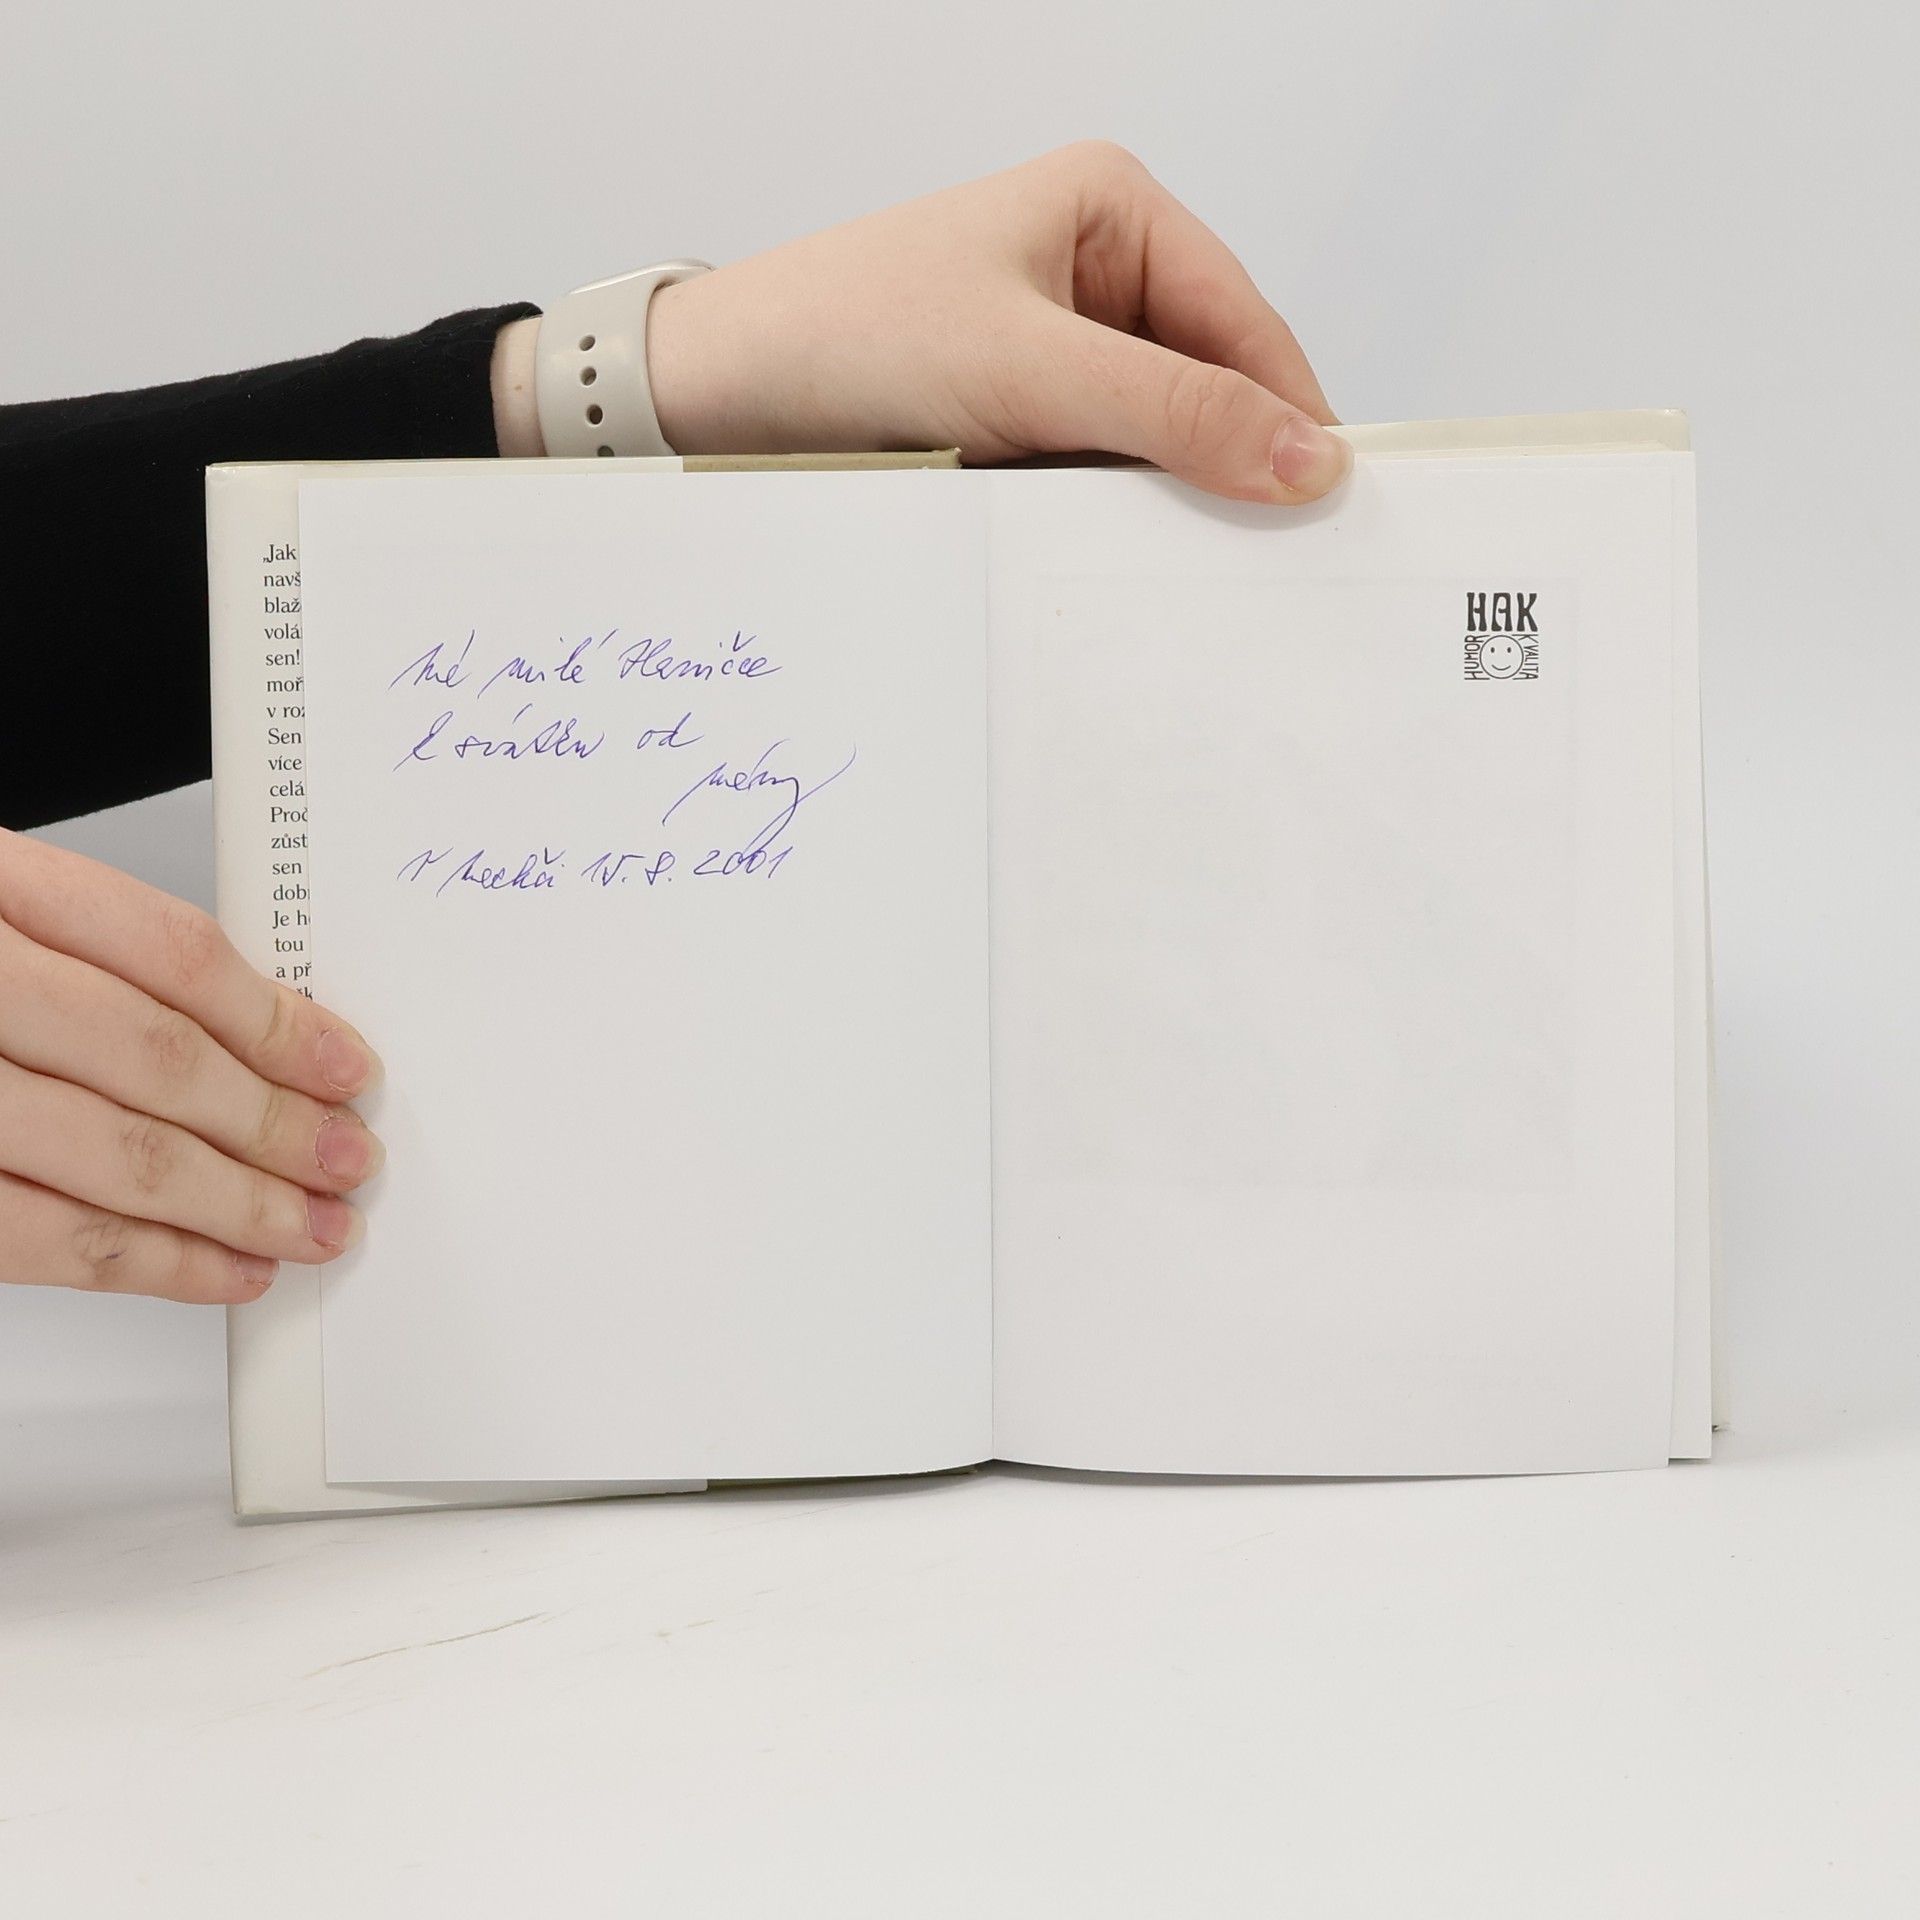 „Jak
navš
blaž
volá
sen!
moř
v roz
Sen
více
celá
Proč
zůst
sen
dob
Je h
tou
a př
Mé milé Haničce
k svátku od
V 15. 8. 2001
HAK
HUMOR KVALITA